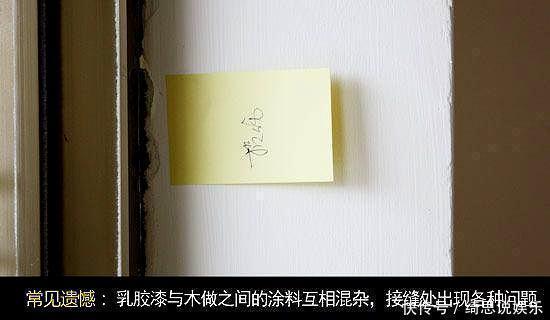 常见遗憾：乳胶漆与木做之间的涂料互相混杂，接缝处出现各种问题
快传号/绮思说娱乐